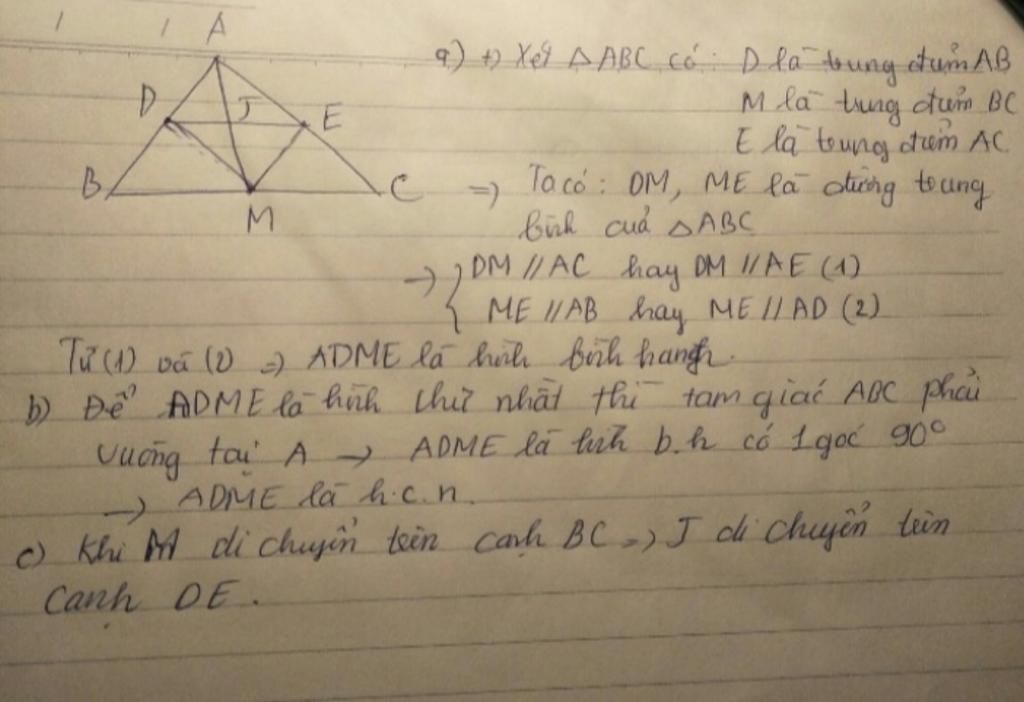 A
D
J
E
B
M
C
a) +) Xét △ABC có: D là trung điểm AB
M là trung điểm BC
E là trung điểm AC
=> Ta có: DM, ME là đường trung
bình của △ABC
→ { DM // AC hay DM // AE (1)
ME // AB hay ME // AD (2)
Từ (1) và (2) => ADME là hình bình hành.
b) Để ADME là hình chữ nhật thì tam giác ABC phải
vuông tại A → ADME là hình b.h có 1 góc 90°
→ ADME là h.c.n.
c) Khi M di chuyển trên cạnh BC => J di chuyển trên
cạnh DE.